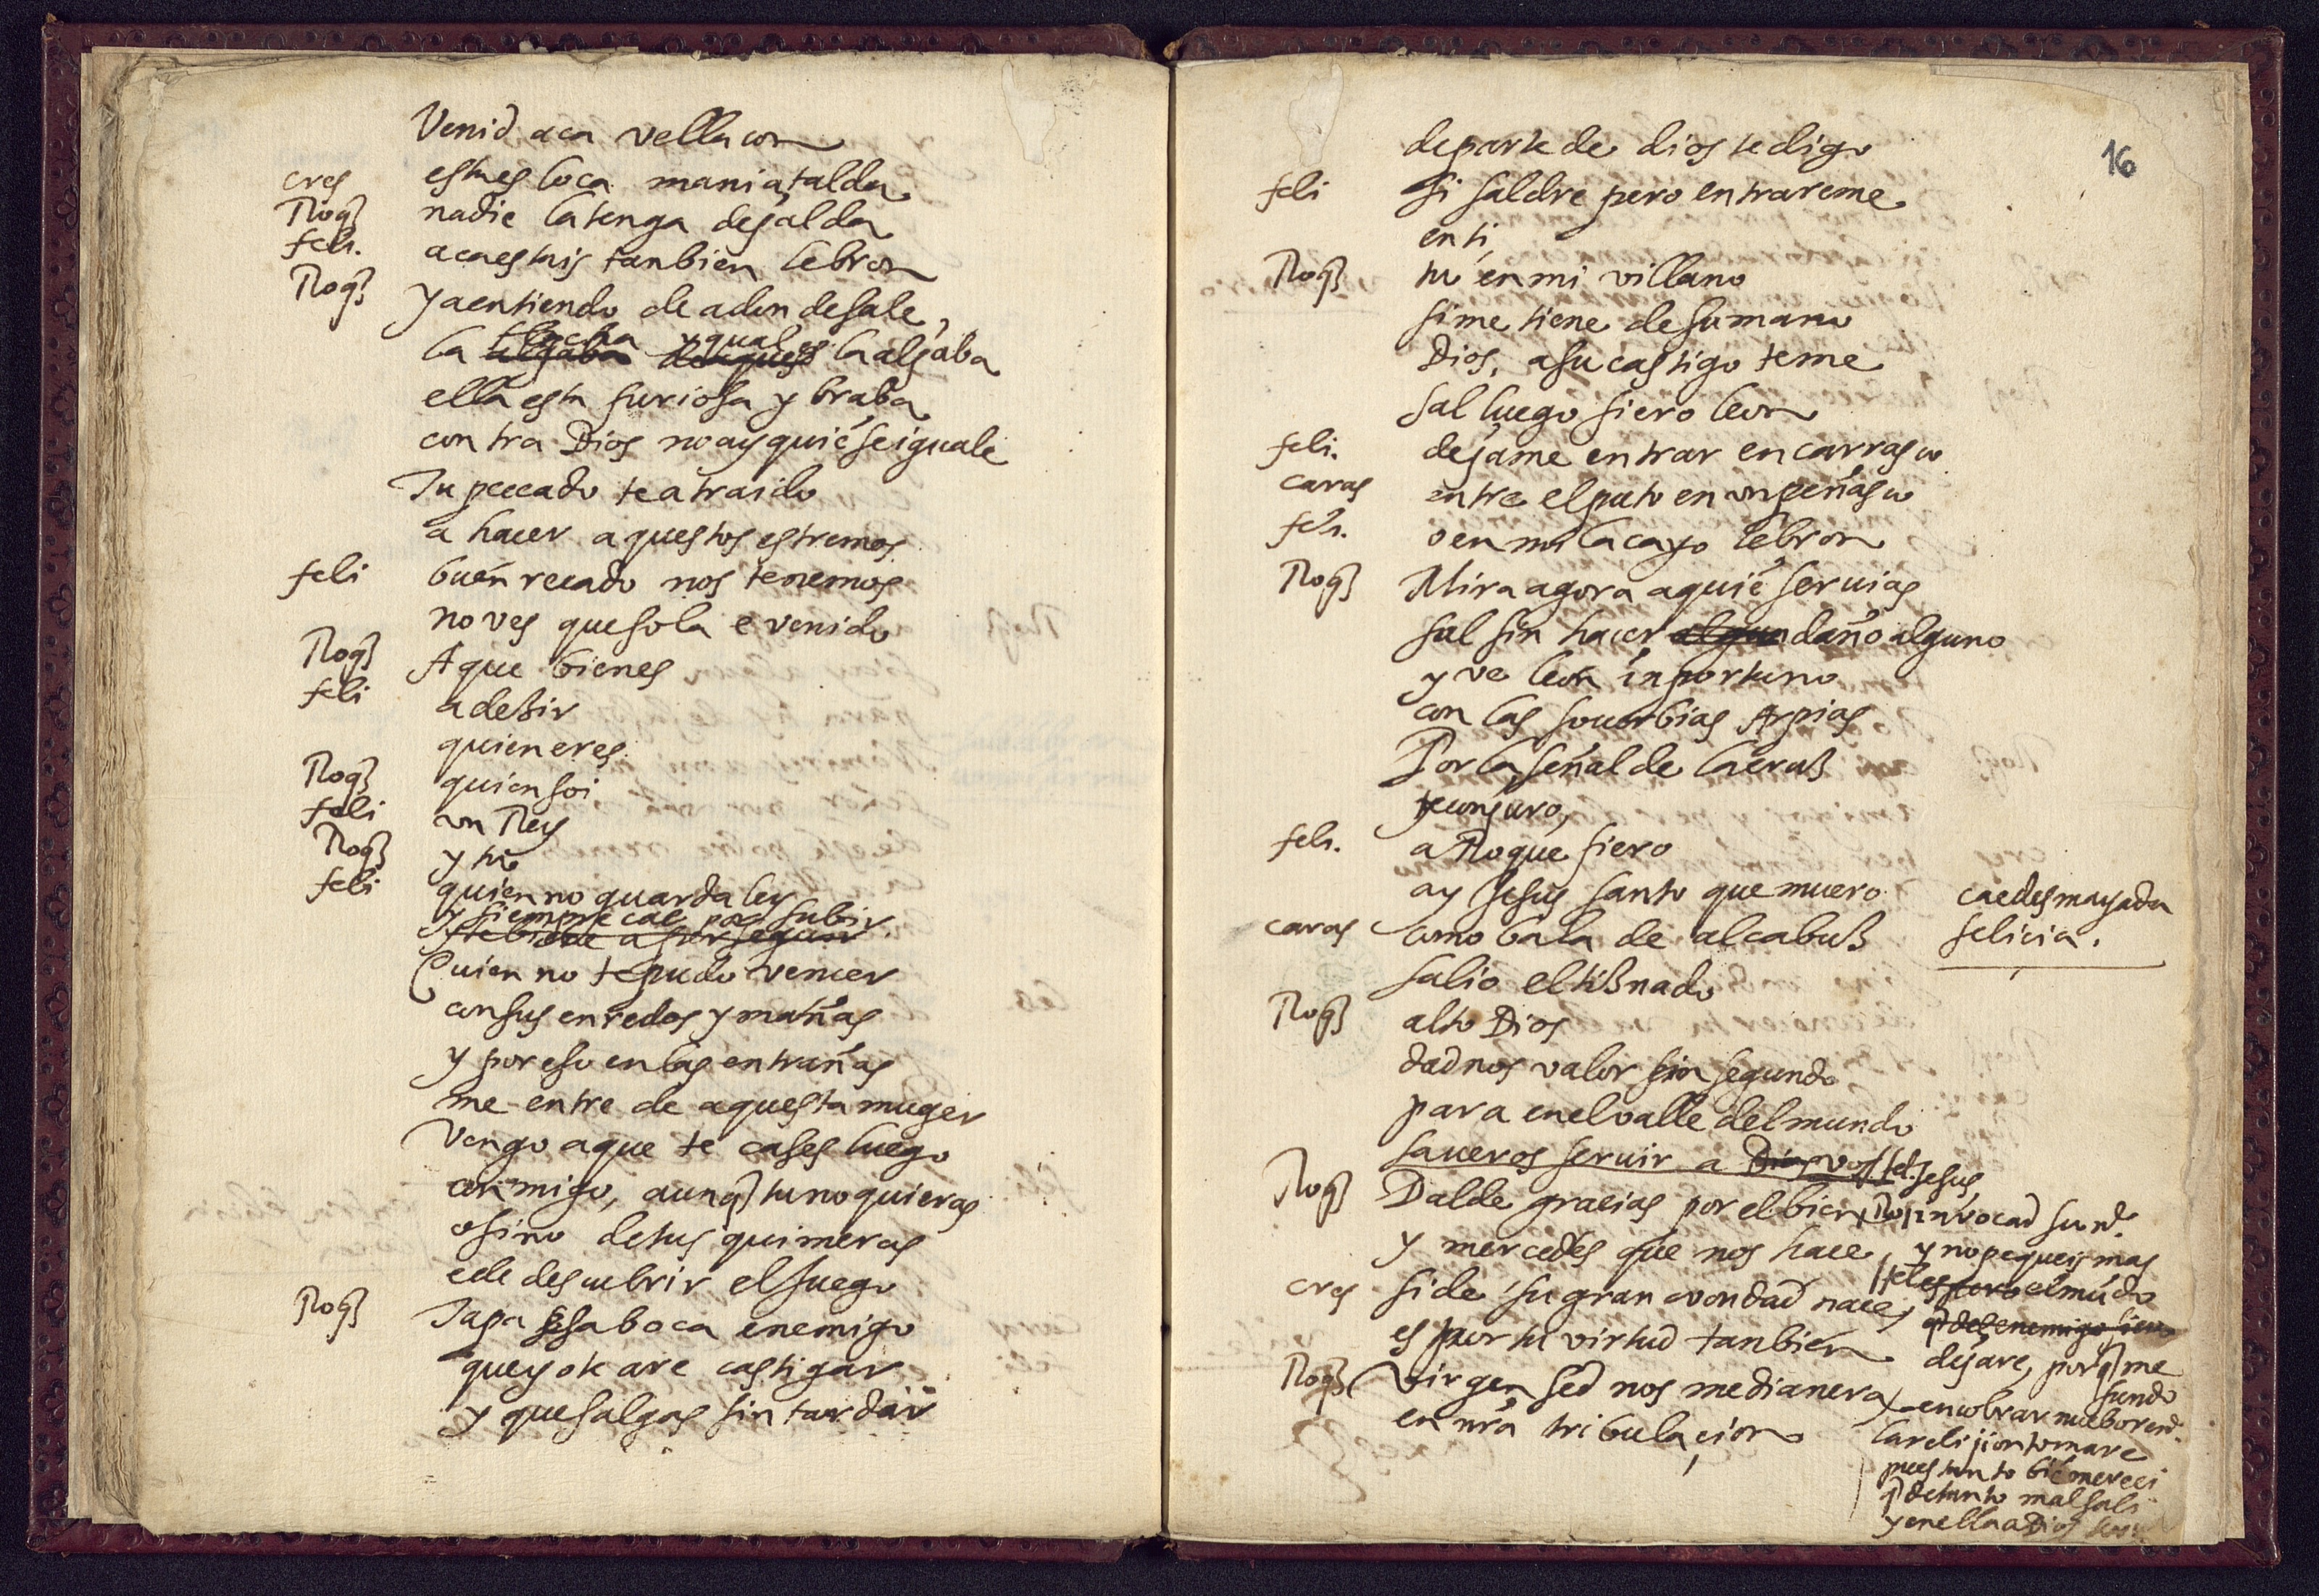 Venid aca vellacon
cres estues loca maniatalda
Roq nadie latenga dejalda
feli. acaestais tanbien lebron
Roq yaentiendo de adon desale,
la flecha yqual es laaljaba
ella esta furiosa y braba
contra Dios noay quiē seiguale
Tu peccado teatraido
a hacer aquestos estremos
feli buen recado nos tenemos
no ves quesola e venido
Roq A que bienes
feli adeßir
quien eres
Roq quien soi
feli un Rey
Roq y tu
feli quien no guarda ley
y siempre cae por subir
Quien no tepudo vencer
consus enredos y mañas
y por eso en las entrañas
me entre de aquesta muger
Vengo aque te cases luego
conmigo, aunq tuno quieras
osino detus quimeras
ede descubrir elfuego
Roq Tapa esaboca enemigo
queyote are castigar
y quesalgas sin tardar
16
departe de dios tedigo
feli si saldre pero entrareme
enti,
Roq tu en mi villano
sime tiene desumano
Dios, asucastigo teme
sal luego fiero leon
feli. dejame entrar en carrasco
caras entre elputo en un peñasco
feli. o en mi lacayo lebron
Roq Mira agora aquiē seruias
sal sin hacer daño alguno
y ve leon inportuno
con las souerbias Arpias
Por la señal de lacruß
teconjuro,
feli. a Roque fiero
ay Jesus santo que muero
caedesmayada
felicia.
caras como bala de alcabuß
salio eltißnado
Roq alto Dios
dadnos valor sin segundo
para enelvalle delmundo
saueros seruir a vos fel. Jesus
Roq Dalde gracias por elbien
y mercedes que nos hace,
cres si de su gran vondad nace,
es por tu virtud tanbien
Roq Virgen sed nos medianera
en nra tribulaçion
Ro invocad su
y no pequeis mas
fel elmūdo
dejare, porq me
fundo
en cobrar
la relijion tomare
pues tanto biē mereci
q detanto mal sali
y enella a Dios